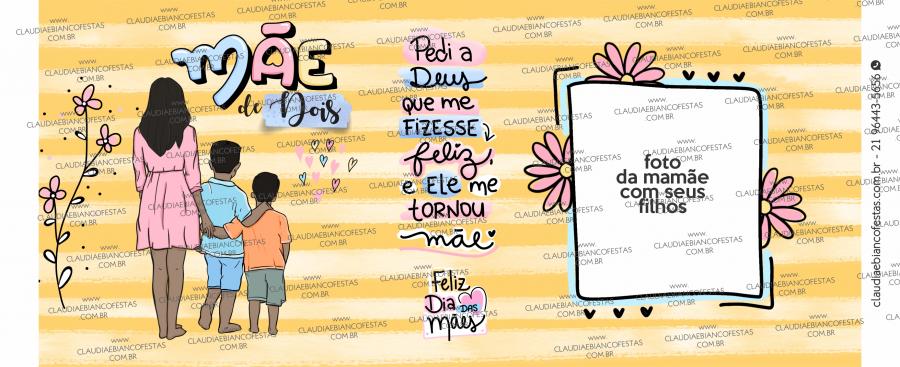 MÃE
de Dois
Pedi a
Deus
que me
FIZESSE
feliz,
e ELE me
tORNOU
mãe
Feliz
Dia DAS
mães
foto
da mamãe
com seus
filhos
claudiaebiancofestas.com.br - 21 96443-5656
www.
CLAUDIAEBIANCOFESTAS
COM.BR